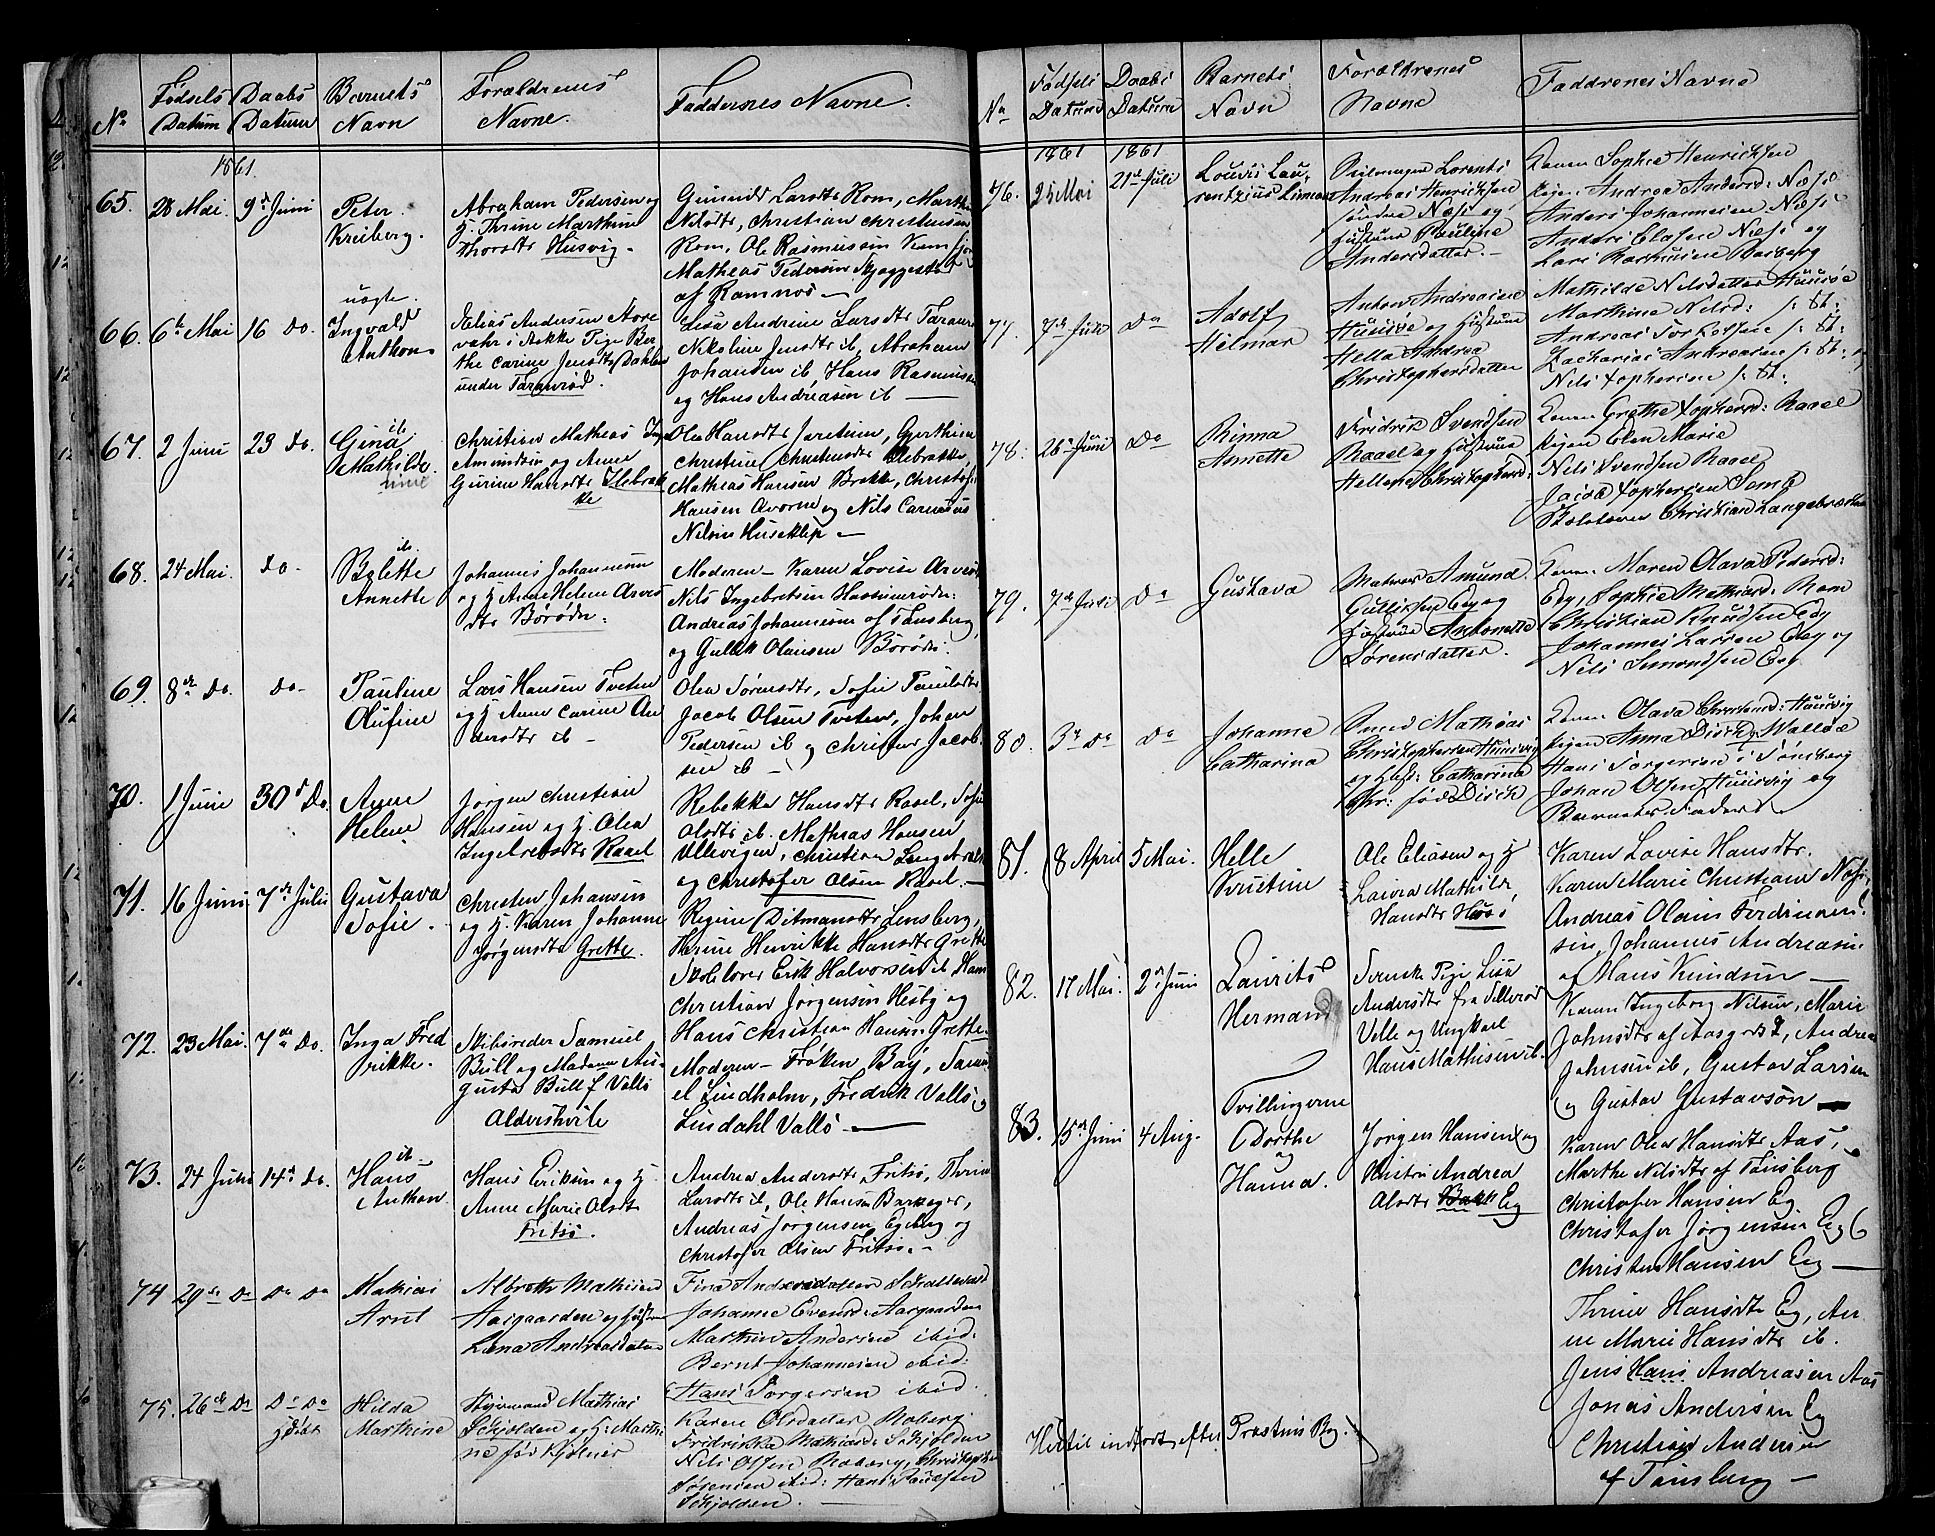 No Fødsels Datum Daabs Datum Barnets Navn Forældrenes Navne. Faddernes Navne.
1861.
65. 28 Mai. 9d Juni Peter Kreiberg.
Abraham Pedersen og
h. Thrine Marthine
Thorsdtr Husvig.
Gunnild Larsdtr Rom, Marthe
Olsdtr, Christian Christensen
Rom, Ole Rasmussen Kam
Mathias Pedersen Skjeggestad
af Ramnes —
66. 6te Mai 16 Do. uægte. Ingvald Anthon
Elias Andersen Aore
vahr i Stokke Pige Ber
the Carine Jensdtr Dahlen
under Taranrød.
Lisa Andrine Larsdtr Taranrød
Nikoline Jensdtr ib, Abraham
Johansen ib Hans Rasmussen
og Hans Andreasen ib —
67. 2 Juni 23 Do. Gina Mathilde
Christian Mathias
Amundsen og Anne
Gurine Hansdtr Ilebrek
ke
Olea Hansdtr Jaretun,
Christine Christensdtr Ilebrekke
Mathias Hansen Brekke, Christofer
Hansen Avorne og Nils Carnelius
Nilsen Huseklep —
68. 24 Mai. Do. Bolette Annette
Johannes Johannesen
og h. Anne Helene Arves
dtr Børøde.
Moderen — Karen Lovise Arvesdtr
Nils Ingebretsen Hassumrøde:
Andreas Johannesen af Tønsberg,
og Gullik Olausen Børøde.
69. 8de Do. Do. Pauline Olufine
Lars Hansen Tveten
og h. Anne Carine An
dersdtr ib —
Olea Sørensdtr, Sofie Paulsdtr
Jacob Olsen Tveten, Johan
Pedersen ib og Christen Jacob
sen ib —
70. 1 Juni 30d Do. Anne Helene
Jørgen Christian
Hansen og h. Olea
Ingebretsdtr Raael
Rebekka Hansdtr Raael, Sofie
Olsdtr ib. Mathias Hansen
Ullevigen, Christian Langebrekke
og Christofer Olsen Raael. —
71. 16 Juni 7de Juli Gustava Sofie.
Christen Johansen
og h. Karen Johanne
Jørgensdtr Grette.
Regine Ditmansdtr Lensberg,
Karine Henrikke Hansdtr Grette
Skolelærer Erik Halvorsen ib Hans
Christian Jørgensen Hesby og
Hans Christian Hansen Grette.
72. 23 Mai. 7de Do. Inga Fred rikke.
Skibsreder Samuel
Bull og Madame Au-
gusta Bull f. Vallø
Aldershvile
Moderen — Frøken Bay, Samu
el Lindholm, Fredrik Vallø og
Lindahl Vallø —
73. 24 Juni 14d Do. Hans Anthon.
Hans Eriksen og h.
Anne Marie Olsdtr
Fritsø.
Andrea Andersdtr Fritsø, Thrine
Larsdtr ib, Ole Hansen Bareager,
Andreas Jørgensen Egeberg og
Christofer Olsen Fritsø. —
74 29de Do Do Do Mathias Arnt
Albreth Mathisen
Aasgaarden og hustru
Lena Andreasdatter
Johanne Evensd: Aasgaarden
Marthin Andersen ibid:
Bernt Johannesen ibid:
Hans Torgersen ibid.
75. 26de Do Do Do Hilda Marthine
Styrmand Mathias
Skjolden og h: Marthi
ne før Kjølner
Karen Olsdatter Moberg
Fridrikke Mathiasd: Skjolden
Nils Olsen Moberg, Christopher
Sørensen ibid: Hans Paulsen
Skjolden. —
No Fødsels Datum Daabs Datum Barnets Navn Forældrenes Navne Faddrenes Navne
1861 1861
76. 25 Mai 21de Juli Lovis Lau- rentzius Linman
Seilmager Lorents
Andreas Henrichsen
søndre Næs og
hustrue Pauline
Andersdatter. —
Konen Sophie Henrichsen
Pigen Andrea Andersd: Næs
Anders Johannesen Næs
Anders Olafsen Næs og
Lars Rasmusen Barberg
77. 7de Juli Do Adolf Hilmar
Anton Andreasen
Huusøe og hustrue
Hella Andrea
Christophersdatter
Mathilde Nilsdatter Huusøe
Marthine Nilsd: s: St:
Andreas Torkelsen s: St:
Zacharias Andreasen s: St:
Nils Tophersen s: St:
78. 26de Juni Do Rinna Annette
Fridrik Svendsen
Raael og hustrue
Hellene Christophersd:
Konen Grethe Tophersd: Raael
Pigen Elen Marie
Nils Svendsen Raael
Jacob Tophersen Sem
Skolelærer Christian Langebrække
79. 7de Juli Do Gustava
Matros Amund
Gulliksen Eeg og
hustrue Antonette
Sørensdatter.
Konen Maren Olava Pedersd:
Eeg, Sophie Mathiasd: Rom
Christian Knudsen Eeg
Johannes Larsen Eeg og
Nils Simondsen Eeg
80. 3de Do Do Johanne Catharina
Smed Mathias
Christophersen Huusvig
og hust: Catharina
Chr: fød Disch
Konen Olava Christensd: Huusvig
Pigen Anna Disch, Walløe
Hans Torgersen i Tønsberg
Johan Olsen Huusvig og
Barnets Fader
81. 8 April 5 Mai. Helle Kristine
Ole Eliasen og h
Lovisa Mathilde
Hansdtr Husø
Karen Lovise Hansdtr.
Karen Marie Christiane Næs,
Andreas Olaus Ferdinan
sen, Johannes Andreasen
og Hans Knudsen —
82. 17 Mai. 2den Juni Laurits Herman
Svenske Pige Lisa
Andersdtr fra Sillerød
Velle og Ungkarl
Hans Mathisen ib.
Karen Ingeborg Nilsen, Marie
Johnsdtr af Aasgrd, Andrea
Johnsen ib, Gustav Larsen
og Gustav Gustavsøn —
83. 15de Juni 4 Aug. Tvillingerne Dorthe og Hanna.
Jørgen Hansen og
Hustru Andrea
Olsdtr Eeg
Karen Olea Hansdtr Aas,
Marthe Nilsdtr af Tønsberg
Christofer Hansen Eeg
Christofer Jørgensen Eeg
Christen Hansen Eeg —
Thrine Hansdtr Eeg, An
ne Marie Hansdtr ib.
Jens Hans Andreasen Aas
Jonas Andersen Eeg
Christian Andersen
af Tønsberg —
Hertil indført efter Præstens Bog.